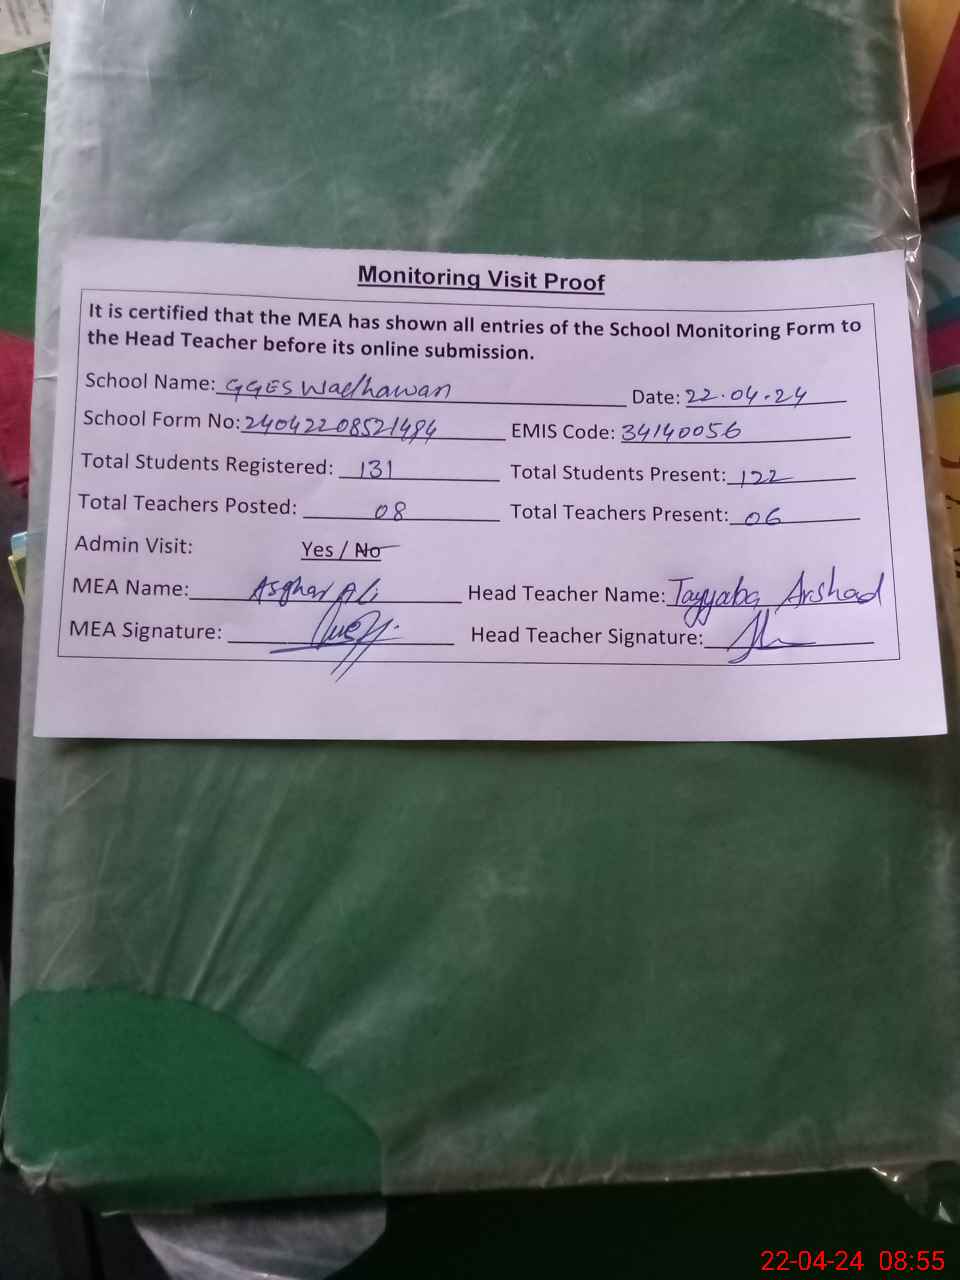 Monitoring Visit Proof
It is certified that the MEA has shown all entries of the School Monitoring Form to
the Head Teacher before its online submission.
School Name: GGES Wadhawan Date: 22.04.24
School Form No: 24042208521494 EMIS Code: 34140056
Total Students Registered: 131 Total Students Present: 122
Total Teachers Posted: 08 Total Teachers Present: 06
Admin Visit: Yes / No
MEA Name: Asghar Ali Head Teacher Name: Tayyaba Arshad
MEA Signature: Head Teacher Signature:
22-04-24 08:55